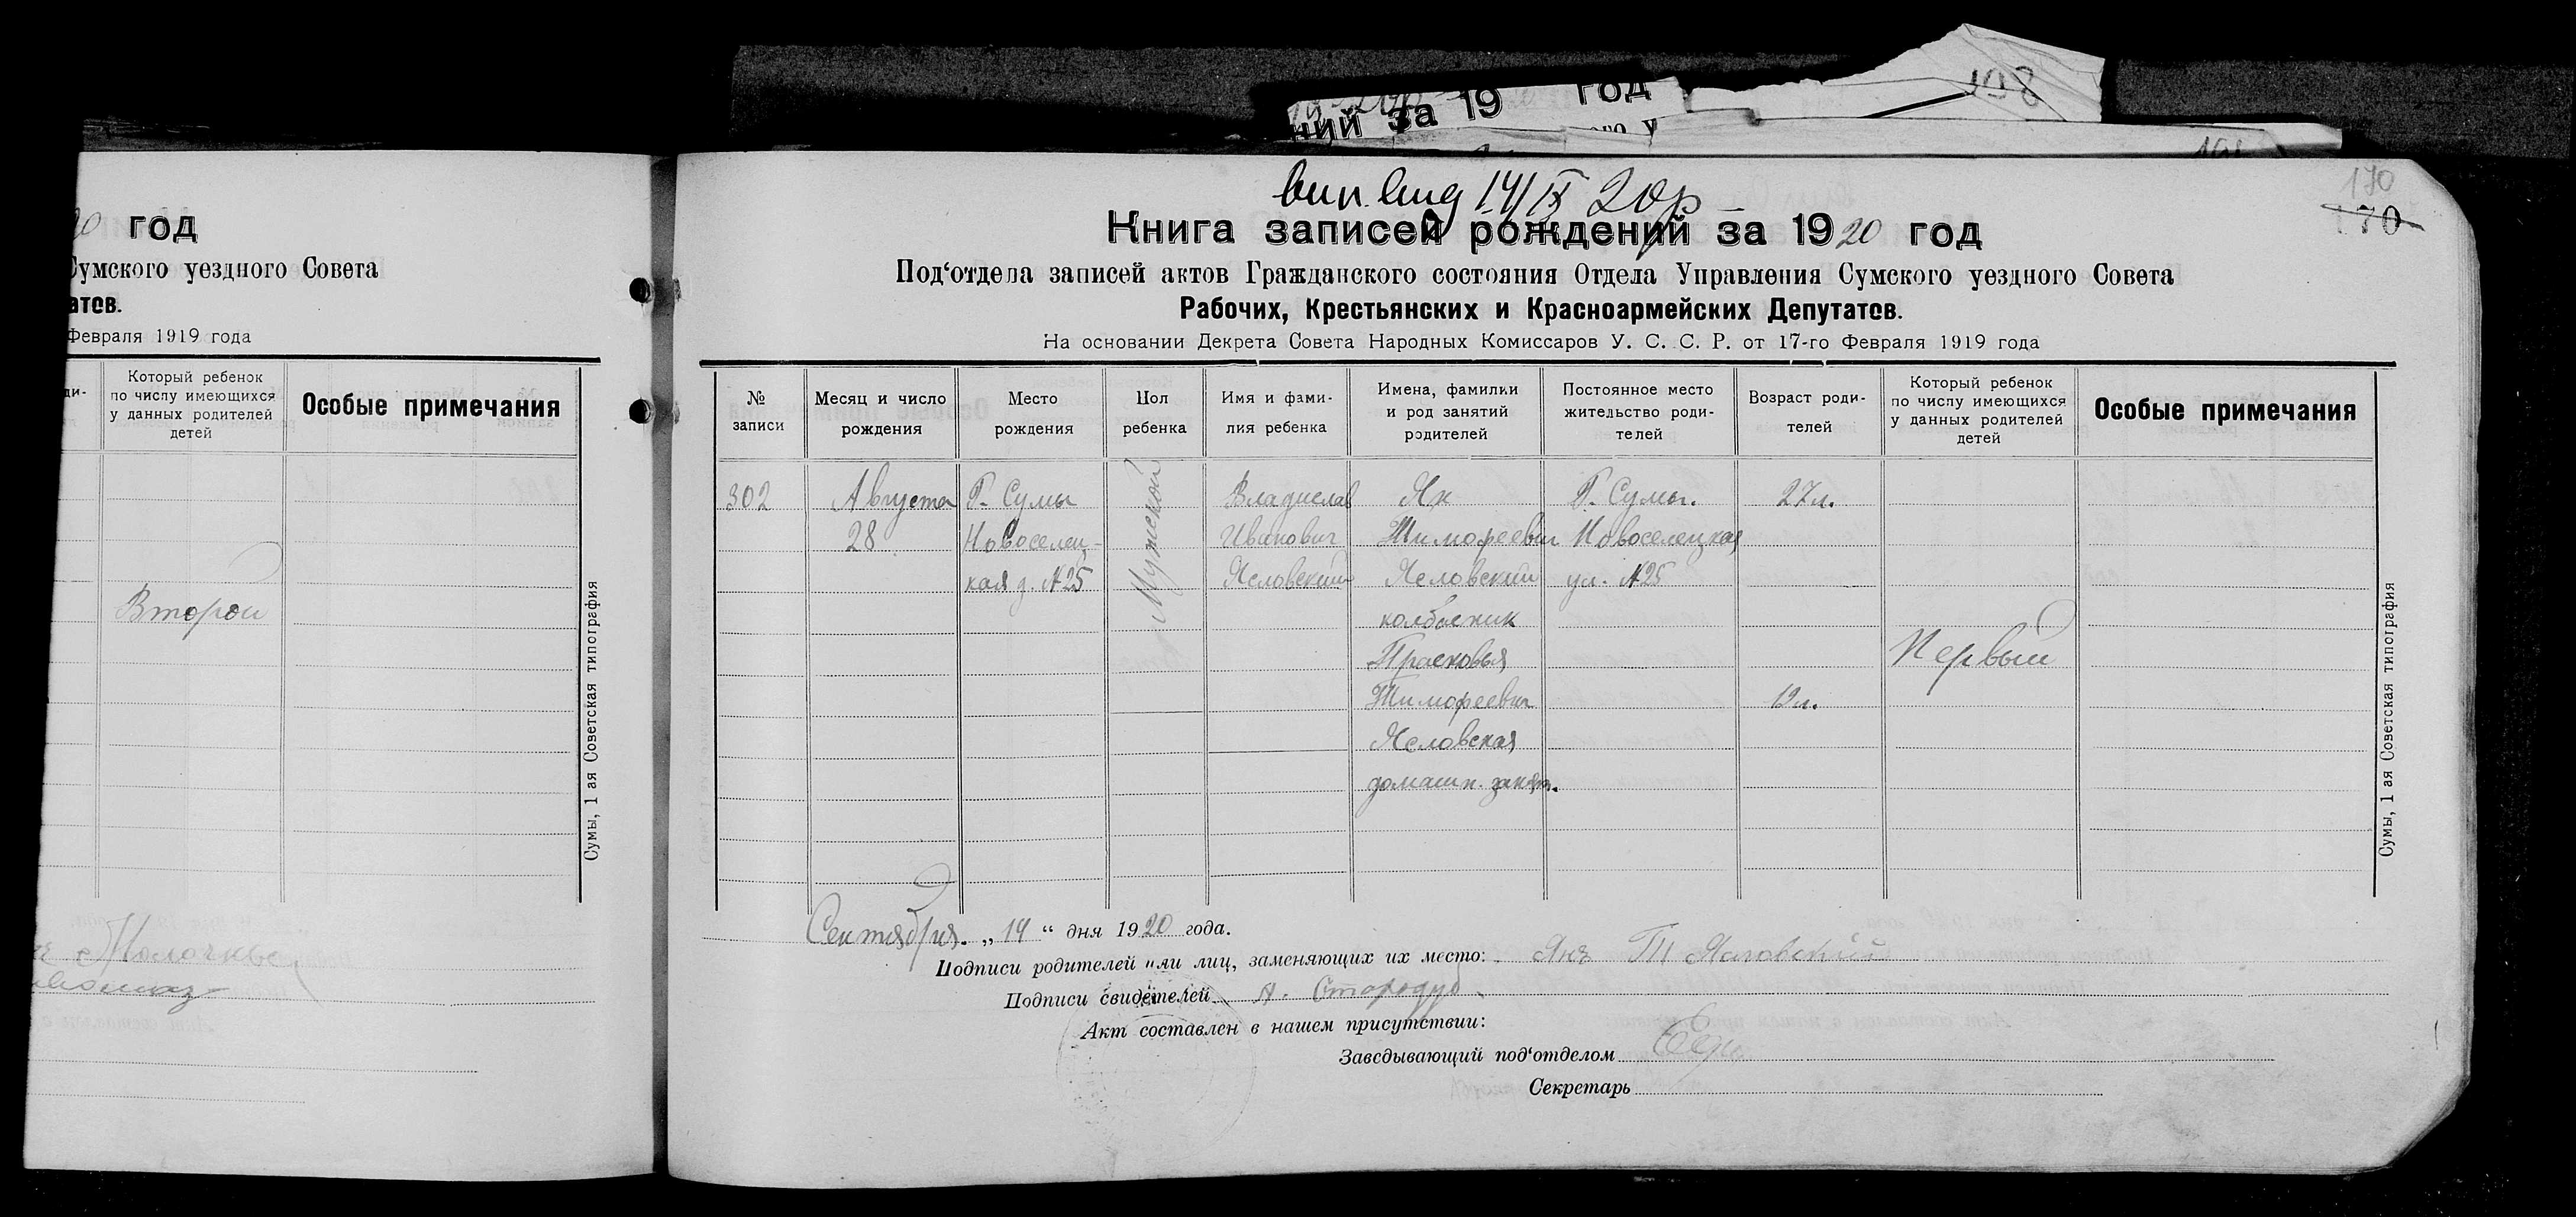 ний за 19 год
198
20 год
Сумского уездного Совета
атов.
Февраля 1919 года
ди-
Который ребенок
по числу имеющихся
у данных родителей
детей
Особые примечания
Второй
Сумы, 1 ая Советская типография
14/IX 20р
170
170
Книга записей рождений за 1920 год
Под‘отдела записей актов Гражданского состояния Отдела Управления Сумского уездного Совета
Рабочих, Крестьянских и Красноармейских Депутатов.
На основании Декрета Совета Народных Комиссаров У. С. С. Р. от 17-го Февраля 1919 года
№
записи
Месяц и число
рождения
Место
рождения
Пол
ребенка
Имя и фами-
лия ребенка
Имена, фамилии
и род занятий
родителей
Постоянное место
жительство роди-
телей
Возраст роди-
телей
Который ребенок
по числу имеющихся
у данных родителей
детей
Особые примечания
302
Августа
28
Г. Сумы
Новоселец-
кая д. №25
Мужской
Владислав
Иванович
Ясловский
Ян
Тимофеевич
Ясловский
колбасник
Прасковья
Тимофеевна
Ясловская
домашн. занят.
Г. Сумы.
Новоселецкая
ул. №25
27л.
19л.
Первый
Сумы, 1 ая Советская типография
Сентября. „14“ дня 1920 года.
Подписи родителей или лиц, заменяющих их место: Янъ Т Ясловский
Подписи свидетелей А. Стародуб
Акт составлен в нашем присутствии:
Заведывающий под‘отделом
Секретарь